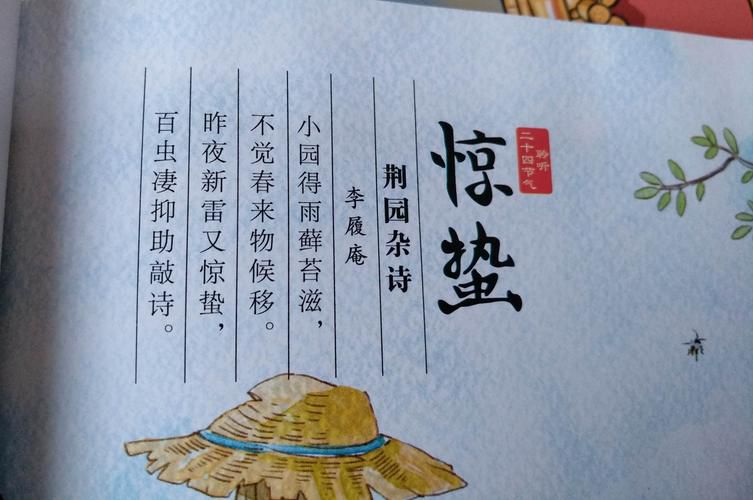 惊蛰
聆听
二十四节气
荆园杂诗
李履庵
小园得雨藓苔滋，
不觉春来物候移。
昨夜新雷又惊蛰，
百虫凄抑助敲诗。